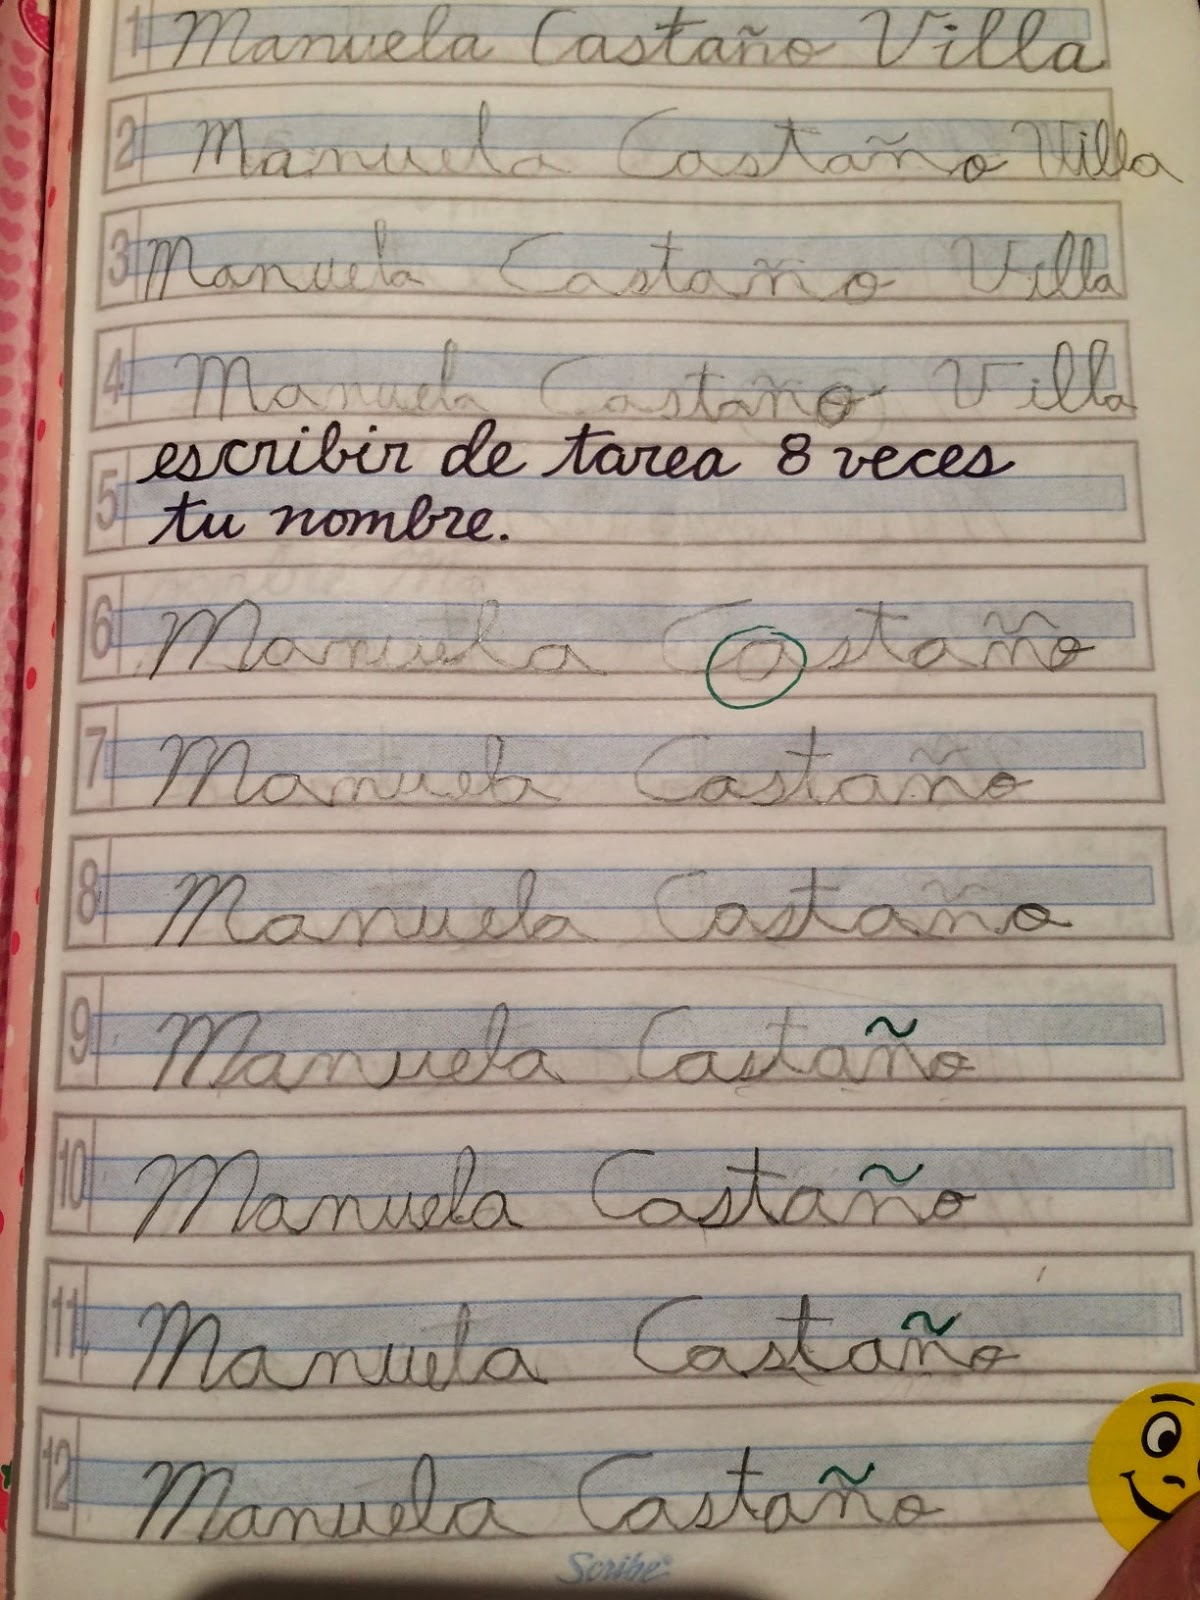 1 Manuela Castaño Villa
2 Manuela Castaño Villa
3 Manuela Castaño Villa
4 Manuela Castaño Villa
escribir de tarea 8 veces
5
tu nombre.
6 Manuela Castaño
7 Manuela Castaño
8 Manuela Castaño
9 Manuela Castaño
10 Manuela Castaño
11 Manuela Castaño
12 Manuela Castaño
Scribe